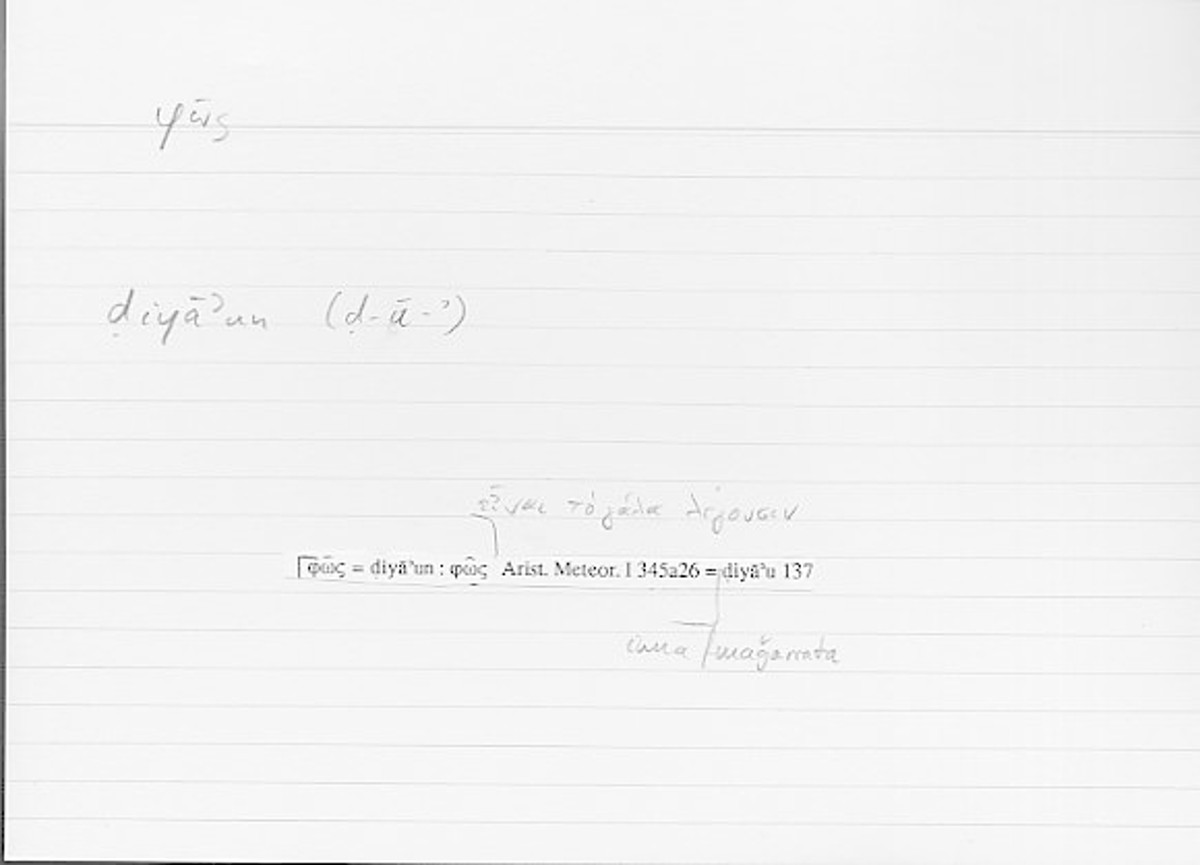 φῶς
ḍiyāʾun (ḍ-ū-ʾ)
εἶναι τὸ γάλα λέγουσιν
φῶς = ḍiyāʾun : φῶς Arist. Meteor. I 345a26 = ḍiyāʾu 137
inna l-maǧarrata